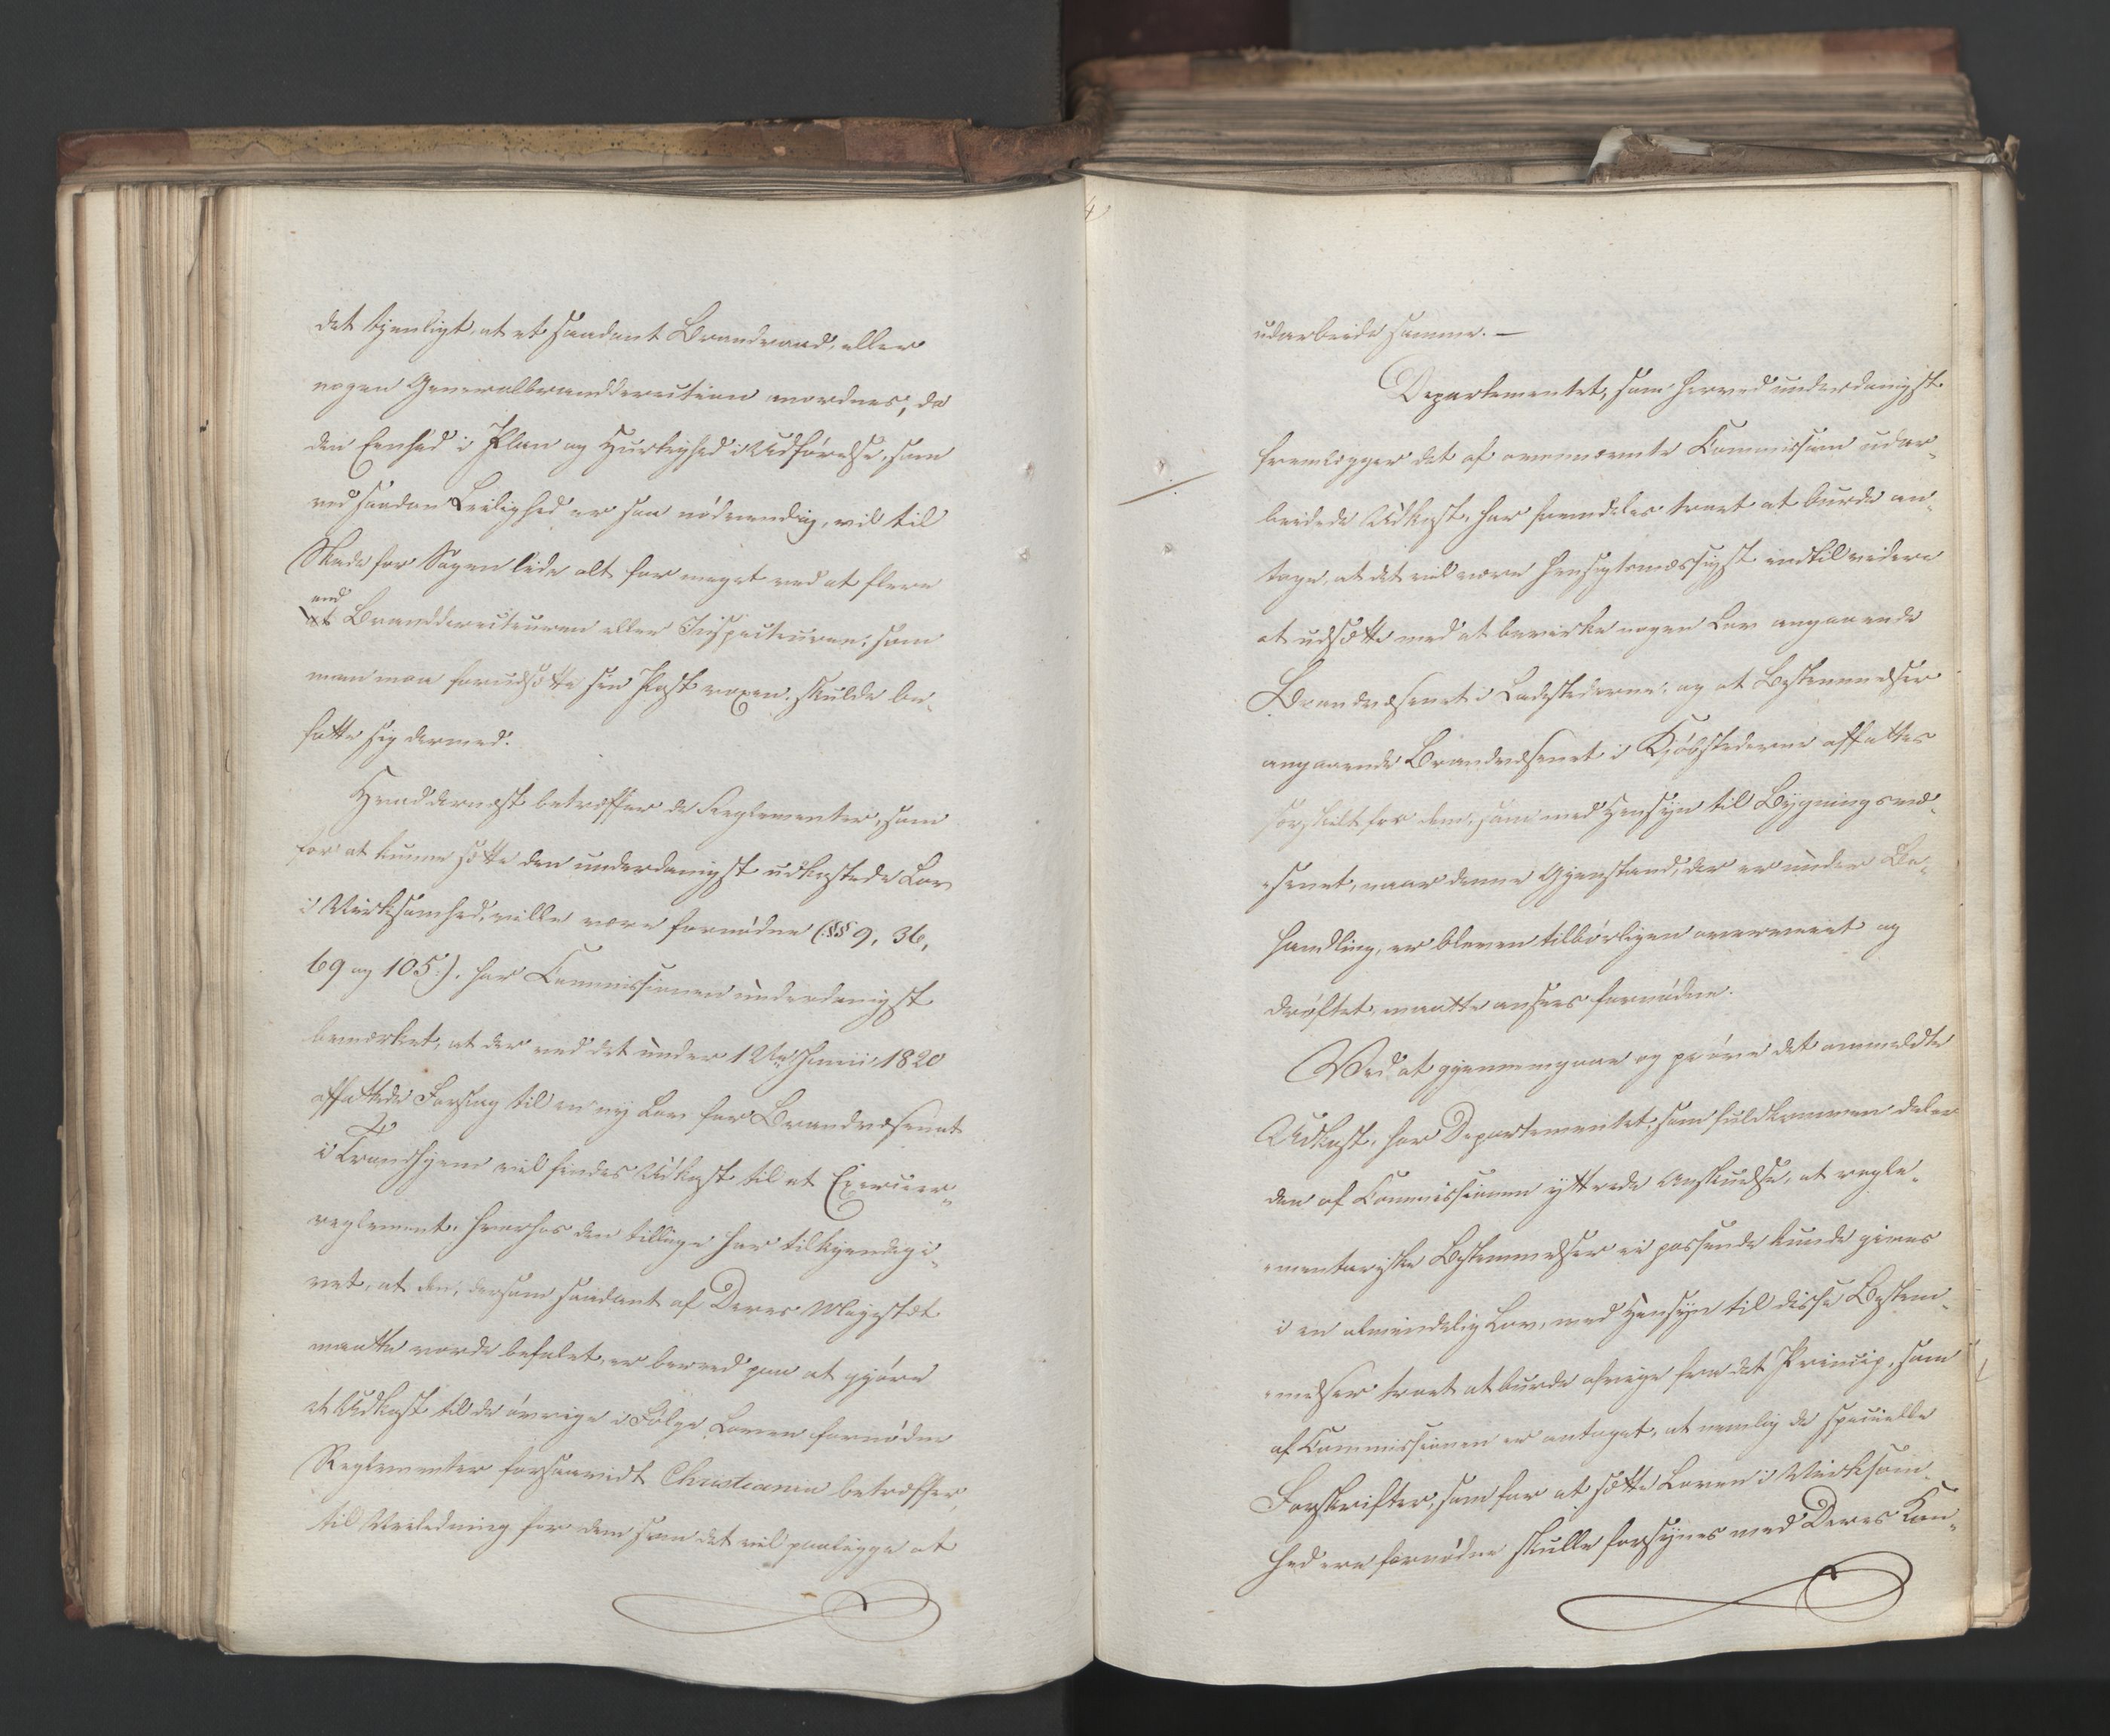 det tjenligt, at et saadant Brandraad, eller
nogen Generalbranddirection anordnes, da
den Eenhed i Plan og Hurtighed i Udførelse, som
ved saadan Leilighed er saa nödvendig, vil til
Skade for Sagen lide alt for meget ved at flere
end
Branddirecteuren eller Inspecteuren, som
man maa forudsætte sin Post voxen, skulde be-
fatte sig dermed.
Hvad dernæst betræffer de Reglementer, som
for at kunne sætte den underdanigst udkastede Lov
i Virksomhed, ville være fornødne (§§ 9, 36,
69 og 105), har Commissionen underdanigst
bemærket, at der ved det under 1ste Junii 1820
affattede Forslag til en ny Lov for Brandvæsenet
i Trondhjem vil findes Udkast til et Exerceer-
reglement, hvorhos den tillige har tilkjendegi-
vet, at den, dersom saadant af Deres Majestæt
maatte vorde befalet, er bered paa at gjöre
et Udkast til de övrige i Fölge Loven fornödne
Reglementer forsaavidt Christiania betræffer,
til Veiledning for dem som det vil paaligge at
udarbeide samme. —
Departementet, som herved underdanigst
fremlægger det af ovennævnte Commission udar-
beidede Udkast, har fremdeles troet at burde an-
tage, at det vil være hensigtsmæssigst indtil videre
at udsætte med at bevirke nogen Lov angaaende
Brandvæsenet i Ladestederne, og at Bestemmelser
angaaende Brandvæsenet i Kjöbstederne affattes
særskilt for dem, som med Hensyn til Bygningsvæ-
senet, naar denne Gjenstand, der er under Be-
handling, er bleven tilbörligen overveiet og
dröftet, maatte ansees fornödne.
Ved at gjennemgaae og pröve det anmeldte
Udkast, har Departementet, som fuldkommen deler
den af Commissionen yttrede Anskuelse, at regle-
mentariske Bestemmelser ei passende kunde gives
i en almindelig Lov, med Hensyn til disse Bestem-
melser troet at burde afvige fra det Princip, som
af Commissionen er antaget, at nemlig de specielle
Forskrifter, som for at sætte Loven i Virksom-
hed ere fornödne skulle forsynes med Deres Kon-